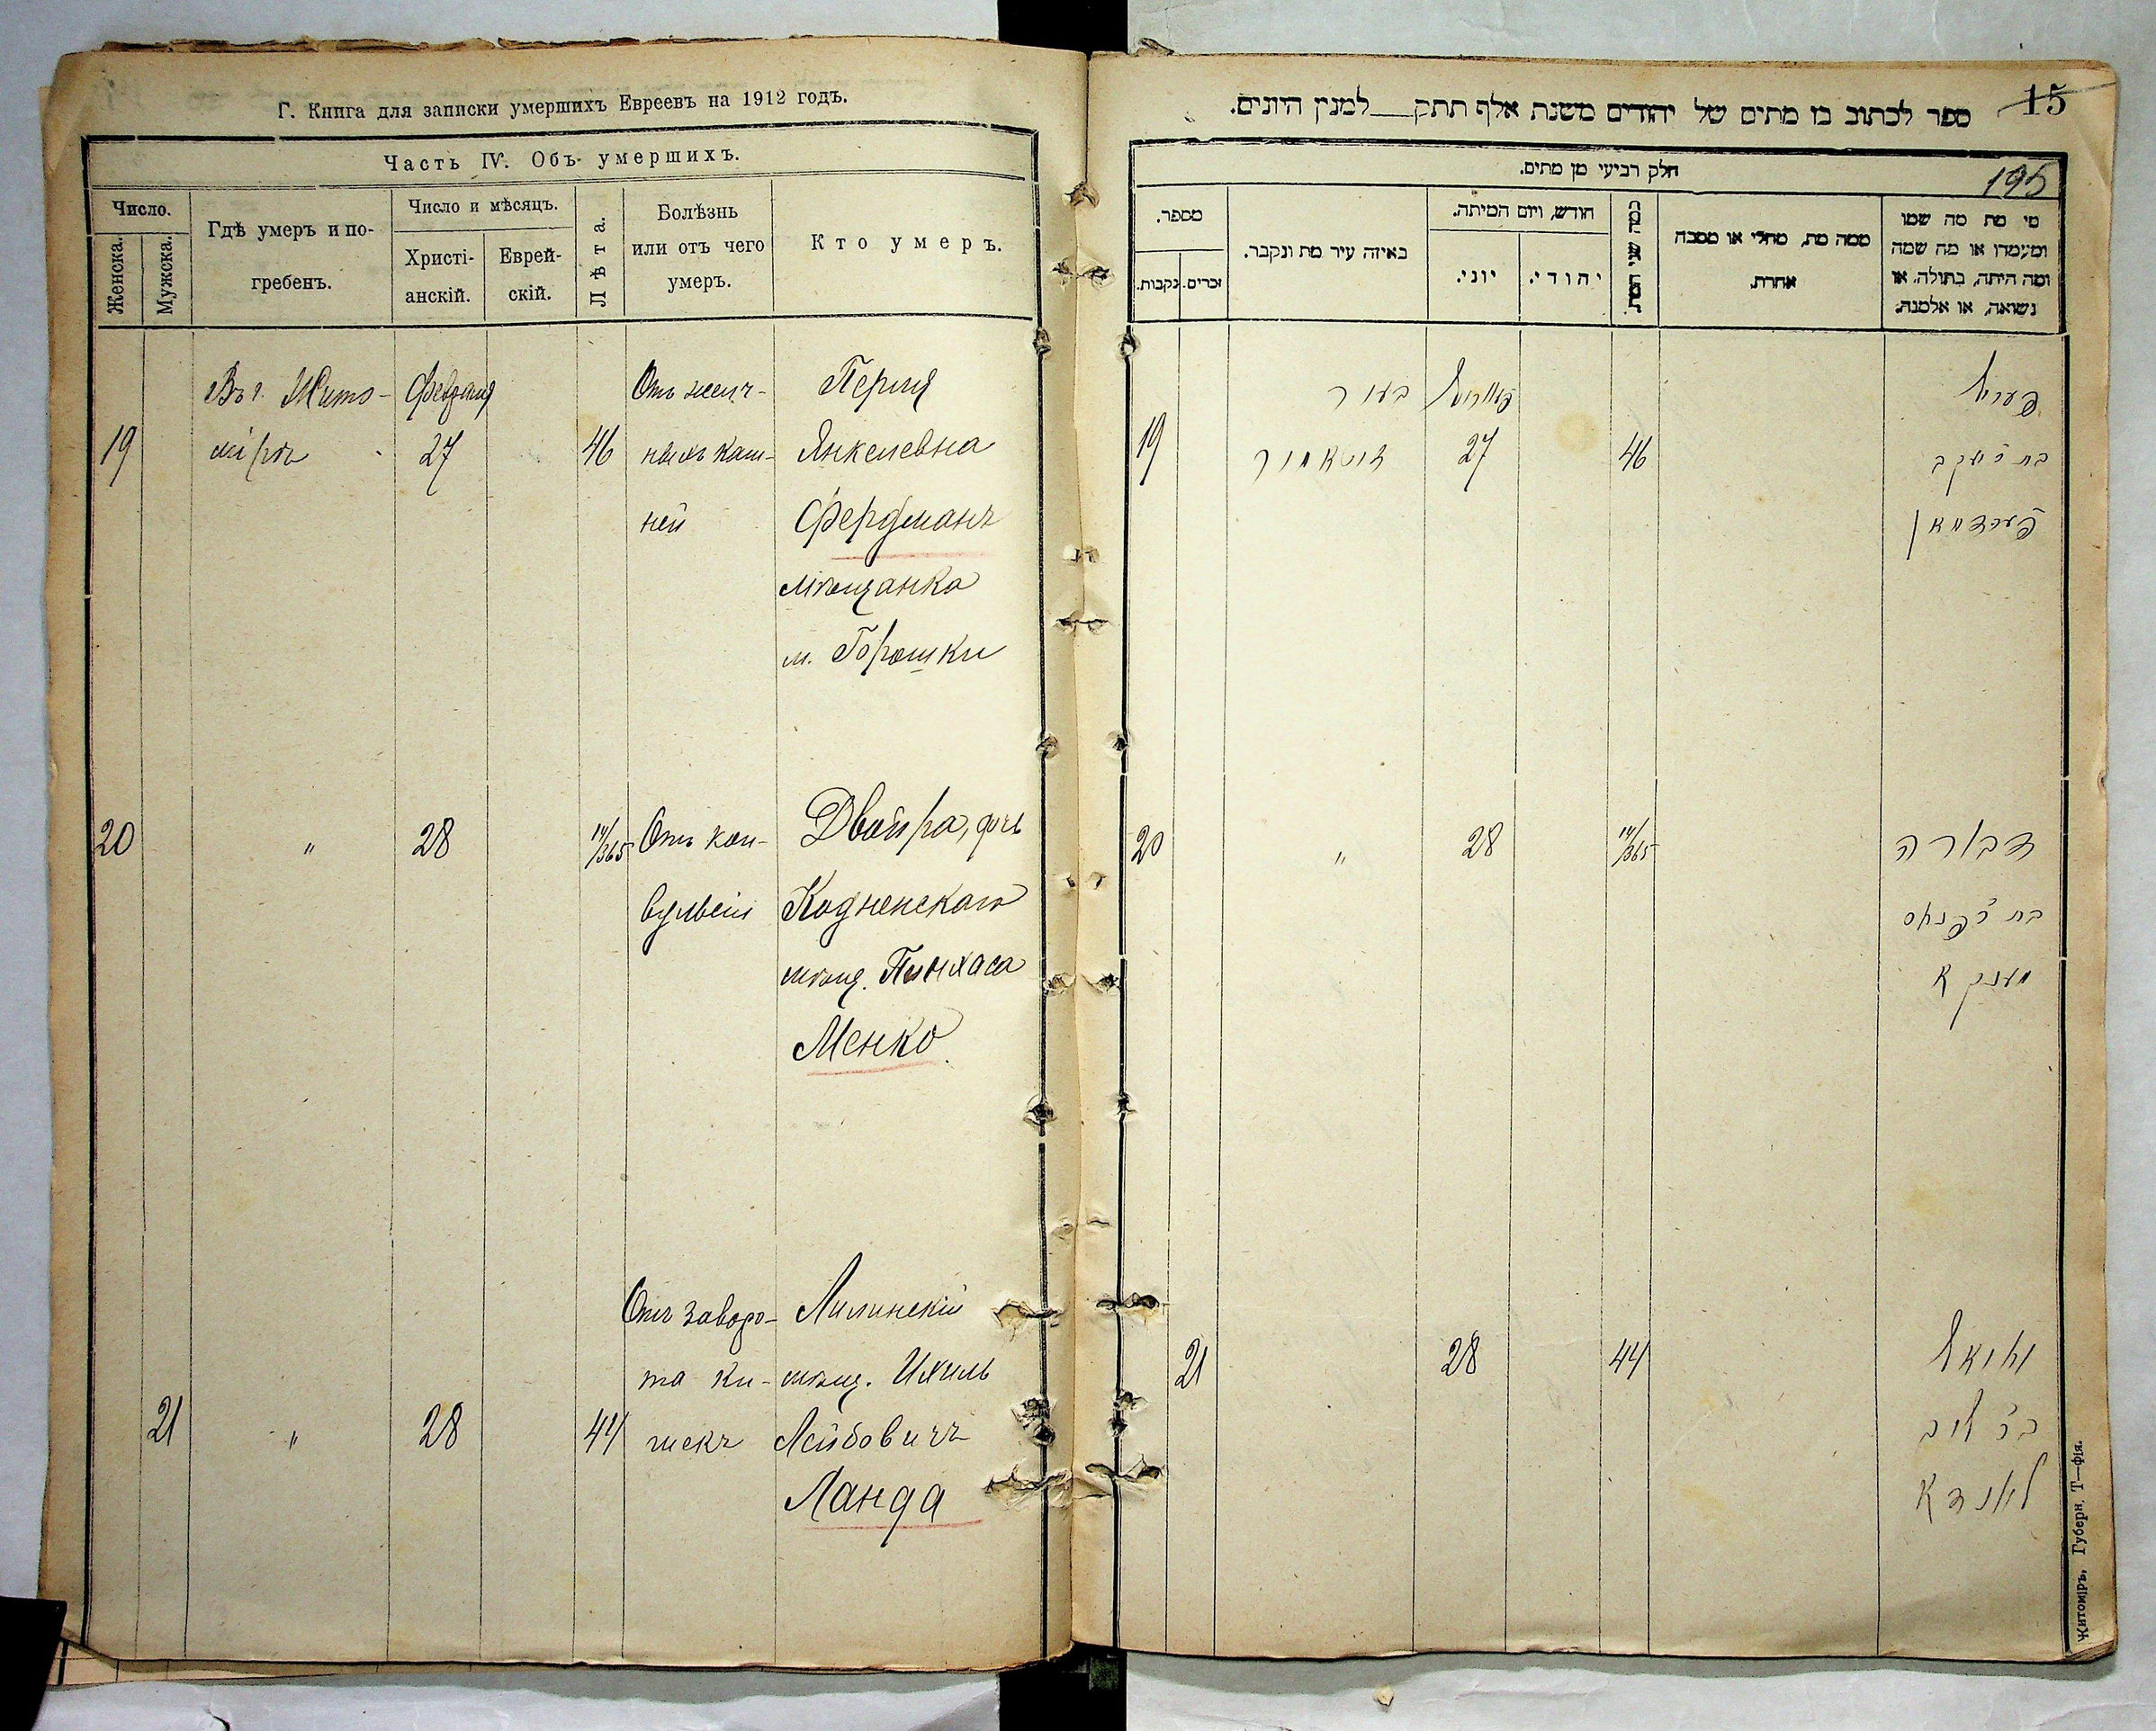 Г. Книга для записки умершихъ Евреевъ на 1912 годъ.
Часть IV. Объ умершихъ.
Число.
Женска.
Мужска.
Гдѣ умеръ и по-
гребенъ.
Число и мѣсяцъ.
Христі-
анскій.
Еврей-
скій.
Лѣта.
Болѣзнь
или отъ чего
умеръ.
Кто умеръ.
Въ г. Жито- Февраля Отъ желч- Перля
19 мірѣ 27 46 ныхъ кам- Янкелевна
ней Фердманъ
мѣщанка
м. Горошки
20 " 28 14/365 Отъ кон- Двойра, дочь
вульсій Кодненскаго
мѣщ. Пинхаса
Менко
Отъ заворо- Лилинскій
та ки- мѣщ. Ихиль
21 " 28 44 шекъ Лейбовичъ
Ланда
15
ספר לכתוב בו מתים של יהודים משנת אלף תתק למנין היונים.
195
חלק רביעי מן מתים.
מי מת מה שמו
ומעמדו או מה שמה
ומה היתה, בתולה, או
נשואה, או אלמנה.
ממה מת, מחלי או מסבה
אחרת.
כמה שני המת.
חודש, ויום המיתה.
יהודי.
יוני.
באיזה עיר מת ונקבר.
מספר.
זכרים.
נקבות.
פערל
בעיר
19 זיטאמיר 27 46 בת ר' יעקב
פערדמאן
20 " 28 14/365 דבורה
בת ר' פנחס
מענקא
21 28 44 יחיאל
בר' ליב
לאנדא
Житоміръ, Губерн. Т—фія.